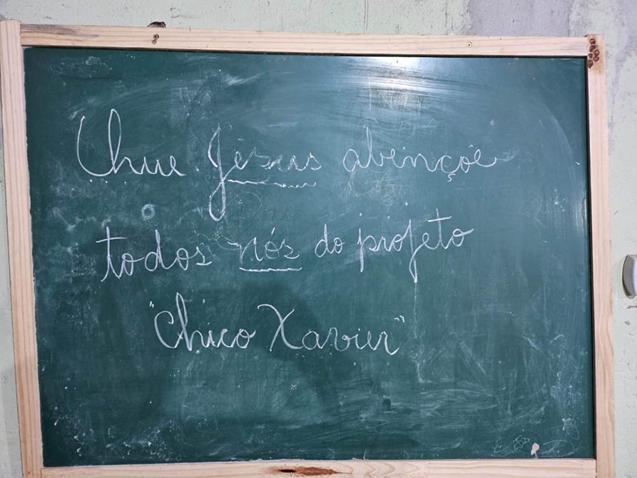 Chue Jesus abençõe
todos nós do projeto
"Chico Xavier"